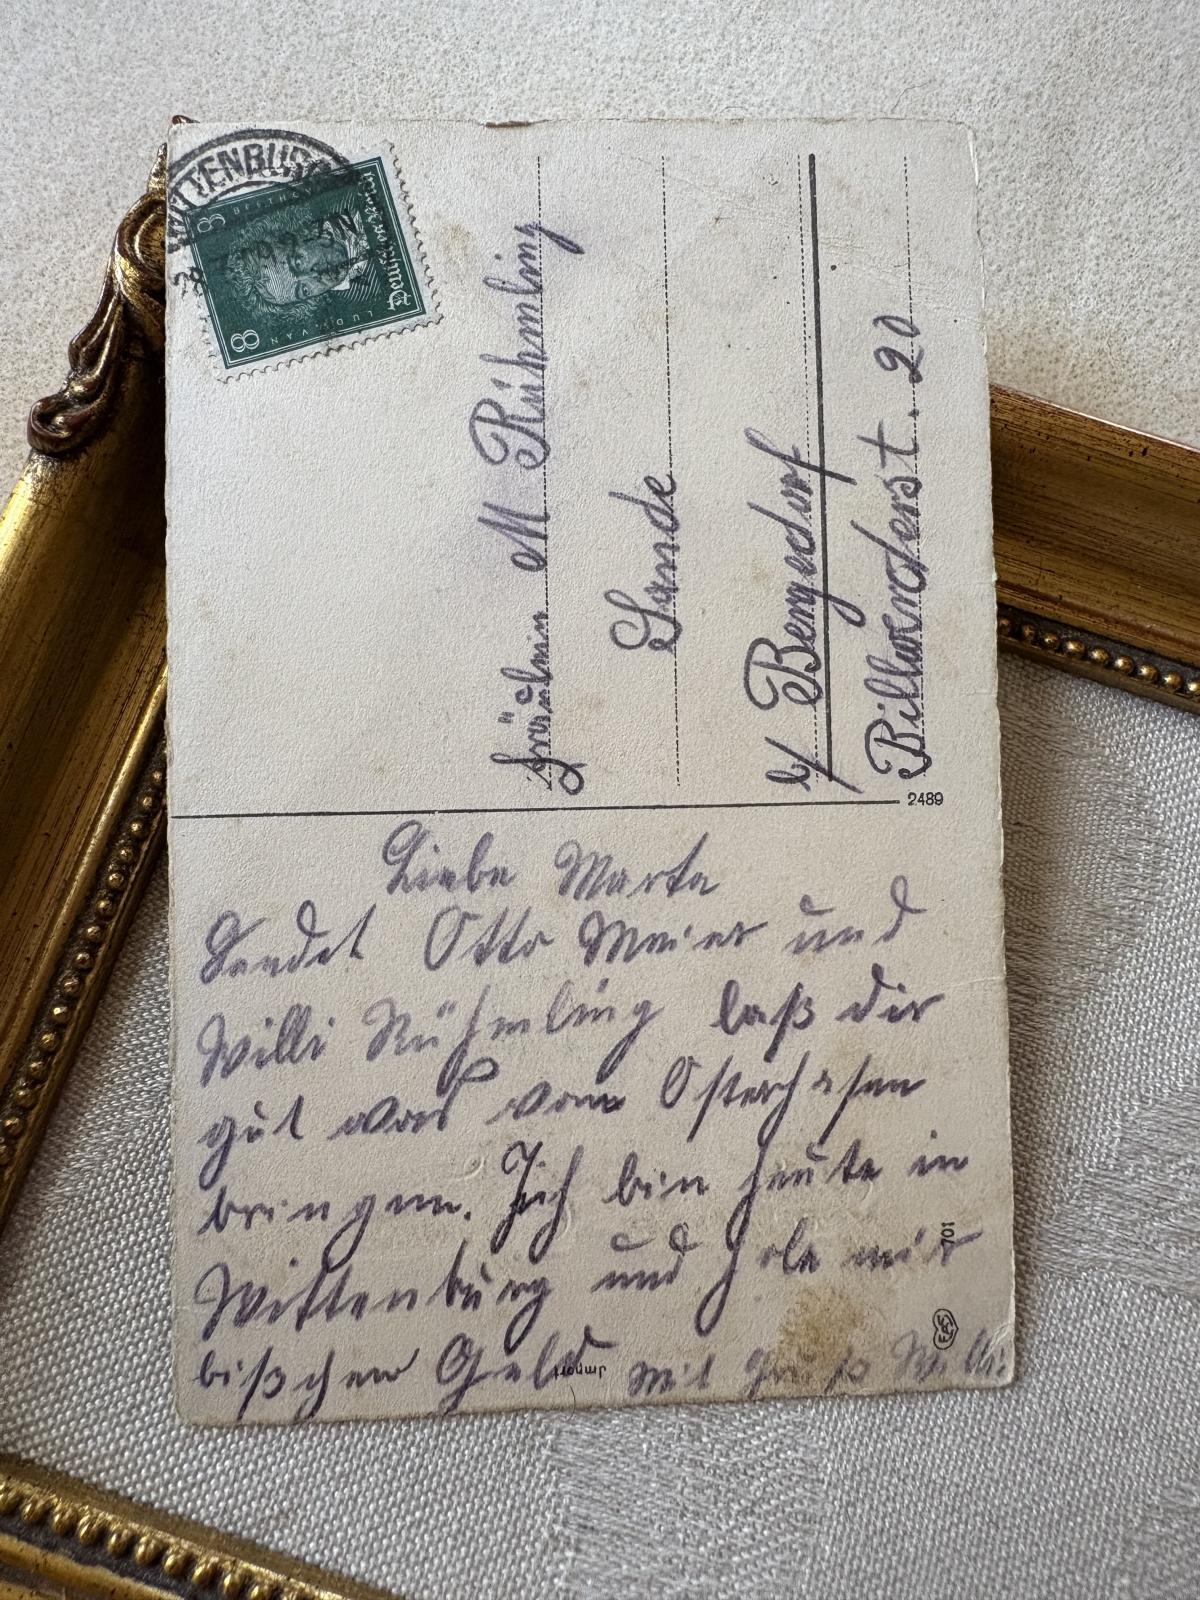 WITTENBURG
8 8
Deutsches Reich
LUDW. VAN
BEETHOVEN
Fräulein M Rühmling
Sande
b/ Bergedorf
Billwerderst. 20
2489
Liebe Marta
Sendet Otto Meier und
Willi Rühmling laß dir
gut was vom Osterhasen
bringen. Ich bin heute in
Wittenburg und hole mir
bißchen Geld mit Gruß Willi
701
Import